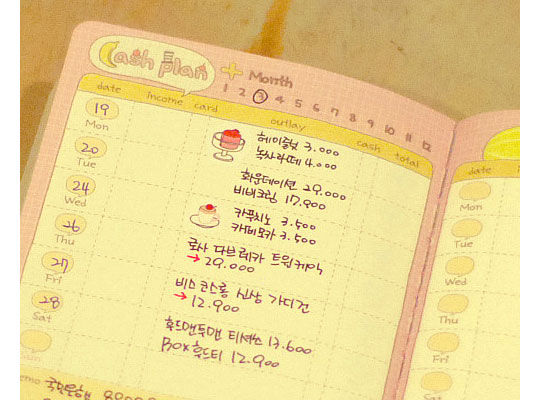 Cash plan
+ Month
1 2 3 4 5 6 7 8 9 10 11 12
date Income card outlay cash total
19 Mon
헤이즐넛 3.000
녹차라떼 4.000
20 Tue
화운데이션 29.000
비비크림 17.900
24 Wed
카푸치노 3.500
카페모카 3.500
26 Thu
로사 다브레카 트윈케익
→ 29.000
27 Fri
비스코스롱 신상 가디건
→ 12.900
28 Sat
후드맨투맨 티셔츠 13.600
Box후드티 12.900
Sun
memo 국민은행
date
Mon
Tue
Wed
Thu
Fri
Sat